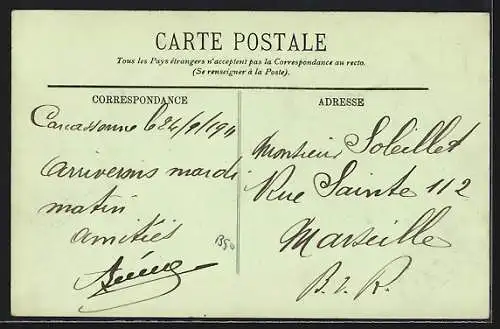 CARTE POSTALE
Tous les Pays étrangers n'acceptent pas la Correspondance au recto.
(Se renseigner à la Poste).
CORRESPONDANCE
ADRESSE
Carcassonne le 24/9/1911
arriverons mardi
matin
amitiés
Monsieur Soleillet
Rue Sainte 112
Marseille
B. d. R.